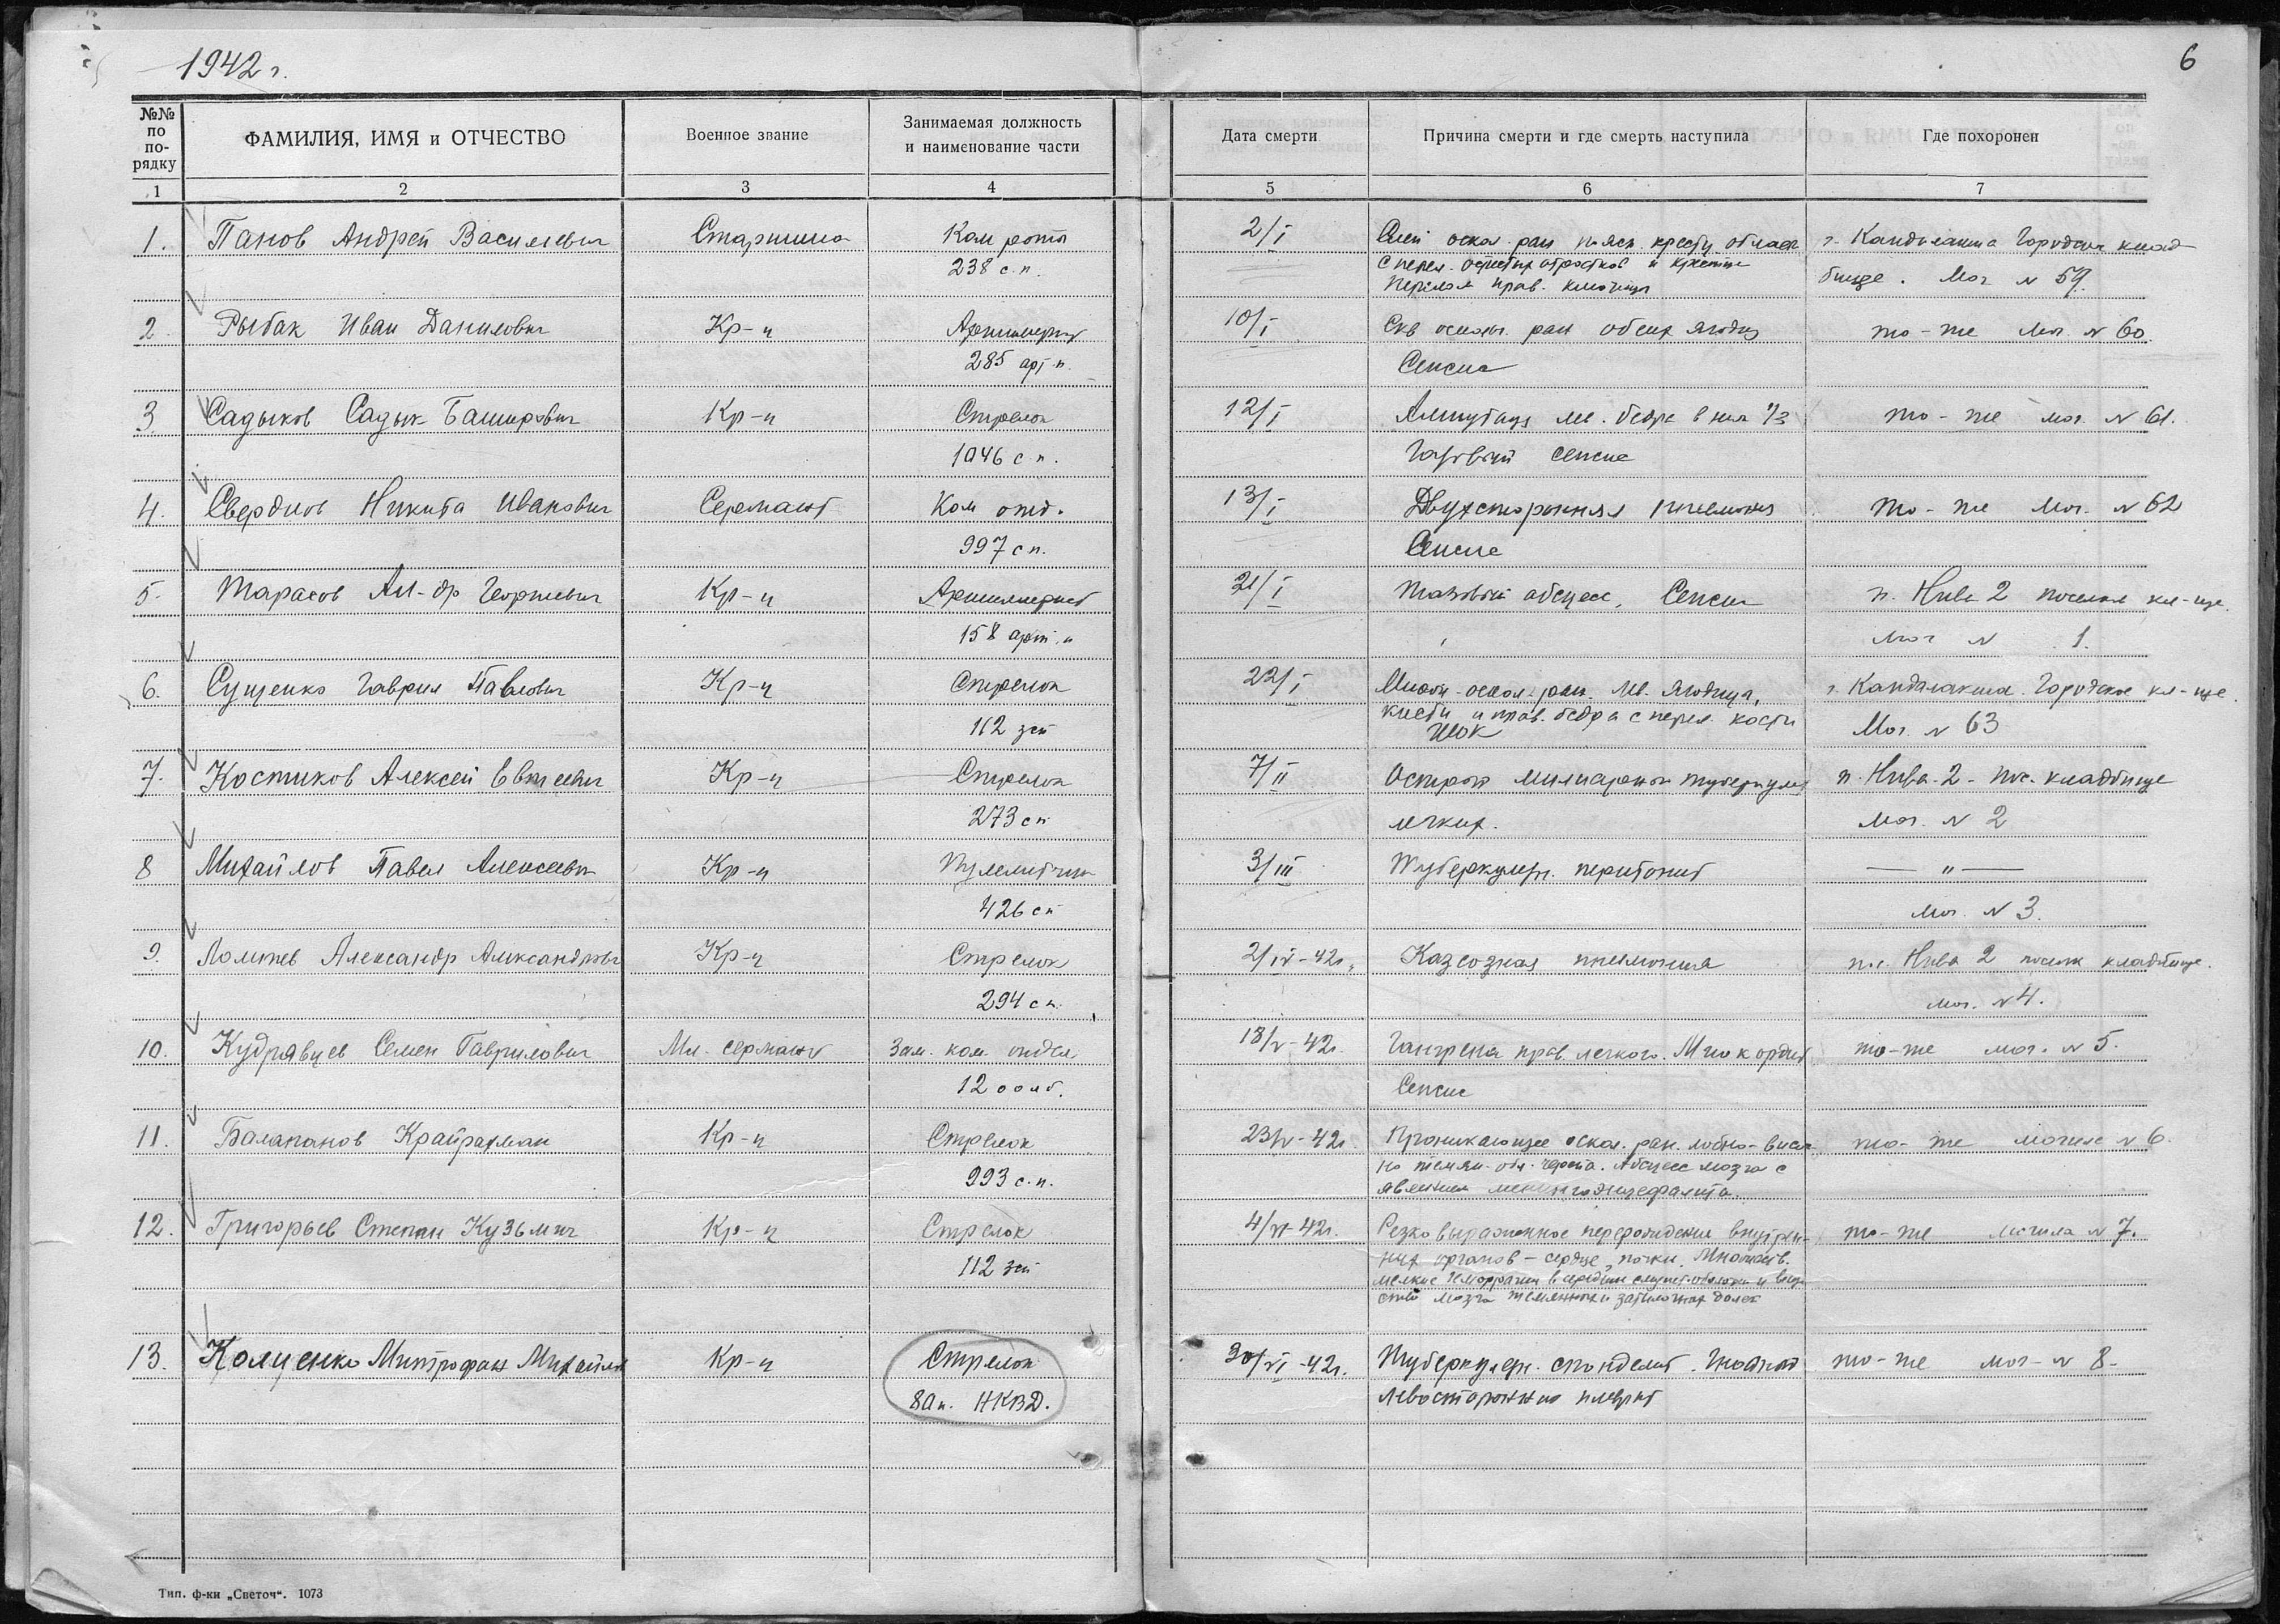 1942 г.
6
№№ по по-рядку
ФАМИЛИЯ, ИМЯ и ОТЧЕСТВО
Военное звание
Занимаемая должность
и наименование части
Дата смерти
Причина смерти и где смерть наступила
Где похоронен
1 2 3 4 5 6 7
1. Панов Андрей Василевич Старшина Ком роты 2/I оскол. ран поясн. крестц област г. Кандалакша Городское клад
238 с.п. с перел. остист отростков и
Перелом прав. ключицы бище. Мог N 59.
2. Рыбак Иван Данилович Кр-ц Артиллерист 10/I Скв осколч. ран обеих ягодиц то-же Мог. N 60.
285 арт п. Сепсис
3. Садыков Садык Баширович Кр-ц Стрелок 12/I Ампутац лев. бедра в ниж 1/3 то-же мог. N 61.
1046 с п. Газовый сепсис
4. Свердлов Никита Иванович Сержант Ком отд. 13/I Двухсторонняя пневмония то-же Мог. N 62
997 с п. Сепсис
5. Тарасов Ал-др Георгиевич Кр-ц Артиллерист 21/I Тазовый абсцесс, Сепсис п. Нива 2 поселк кл-ще.
158 арт. п мог N 1.
6. Сущенко Гаврил Павлович Кр-ц Стрелок 22/I Множ. оскол. ран. лев. ягодицы, г. Кандалакша. Городское кл-ще.
112 зсп кисти и прав. бедра с перел кости
Шок Мог. N 63
7. Костиков Алексей Евтеевич Кр-ц Стрелок 7/II Острый милиарный туберкулез п. Нива-2- пос. кладбище
273 сп легких. Мог. N 2
8 Михайлов Павел Алексеевич Кр-ц Пулеметчик 3/III Туберкулезн. перитонит — " —
426 сп мог. N 3.
9. Ломтев Александр Александрович Кр-ц Стрелок 2/IV-42г. Казеозная пневмония пос. Нива 2 поселк кладбище.
294 с п. мог. N 4.
10. Кудрявцев Семен Гаврилович Мл. сержант Зам. ком. отдел 18/V-42г. Гангрена прав. легкого. Миокардит то-же мог. N 5.
12 Сепсис
11. Балапанов Крайрахман Кр-ц Стрелок 23/V-42г. Проникающее оскол. ран. лобно-височ то-же могила N 6.
993 с.п. но темян. обл. черепа. Абсцесс мозга с
явлением менингоэнцефалита.
12. Григорьев Степан Кузьмич Кр-ц Стрелок 4/VI-42г. Резко выраженное перерождение внутрен- то-же могила N 7.
112 зсп них органов - сердце, почки. Множеств.
мелкие геморрагии в и вещ
ство мозга теменных и затылочных долек
13. Коляенко Митрофан Михайлов Кр-ц Стрелок 30/VI-42г. Туберкулезн. спонделит. Гнойный то-же мог- N 8-
80 п. НКВД. левосторонний плеврит
Тип. ф-ки „Светоч“. 1073